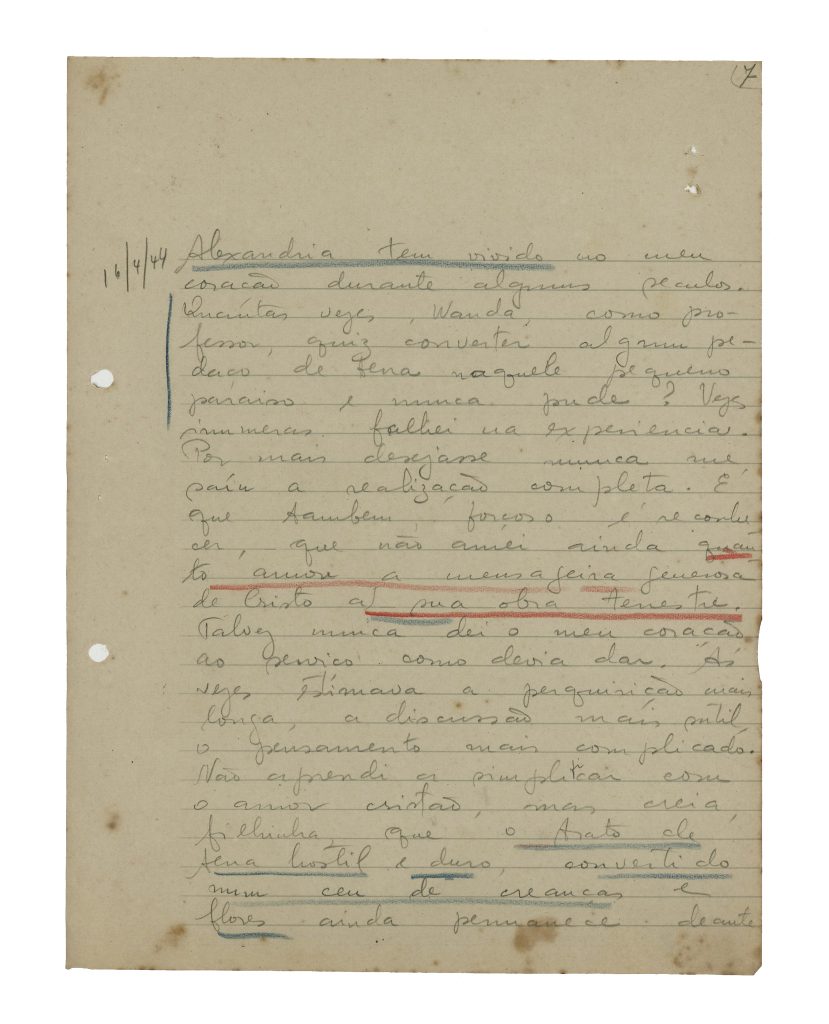 7
16/4/44
Alexandria tem vivido no meu
coração durante alguns seculos.
Quantas vezes, Wanda, como pro-
fessor, quiz converter algum pe-
daço de terra naquele pequeno
paraiso e nunca pude? Vezes
inumeras falhei na experiencia.
Por mais desejasse nunca me
saíu a realização completa. É
que tambem, forçoso é reconhe
cer, que não amei ainda quan
to amou a mensageira generosa
de Cristo a sua obra terrestre.
Talvez nunca dei o meu coração
ao serviço como devia dar. Às
vezes estimava a perquirição mais
longa, a discussão mais sutil,
o pensamento mais complicado.
Não aprendi a simplificar com
o amor cristão, mas creia,
filhinha, que o trato de
terra hostil e duro, convertido
num ceu de creanças e
flores ainda permanece deante